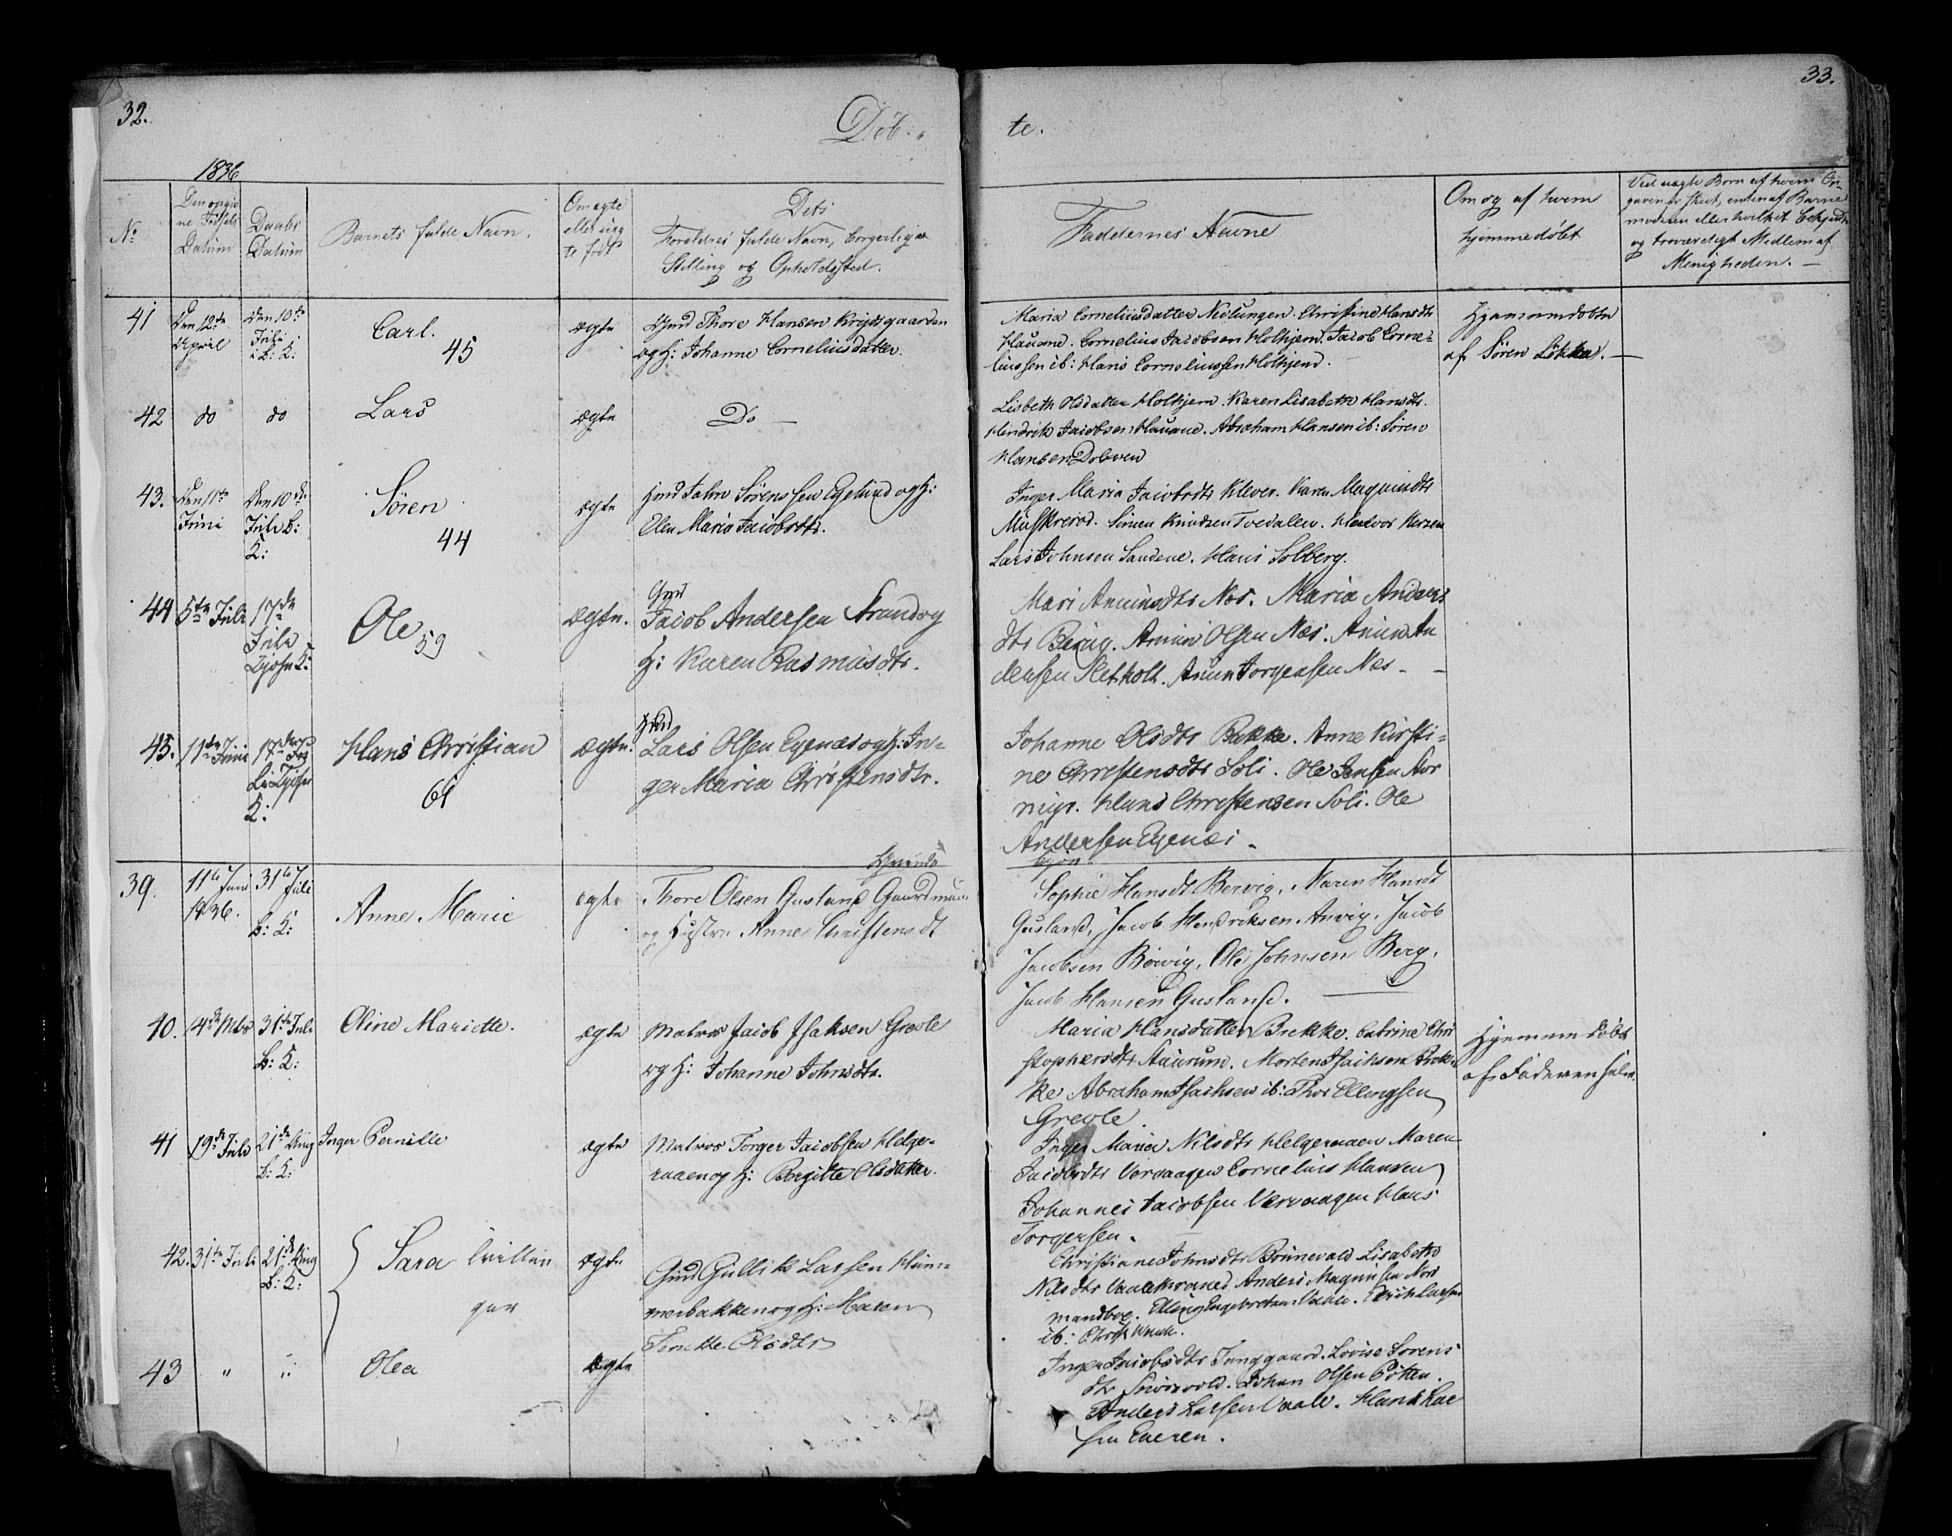 32.
Døb-
te.
33.
1836
No
Den opgiv
ne Fødsels
Datum
Daabs
Datum
Barnets fulde Navn.
Om ægte
eller uæg
te født
Dets
Forældres fulde Navn, borgerlige
Stilling og Opholdssted.
Faddernes Navne
Om og af hvem
hjemmedøbt
Ved uægte Børn af hvem
Menigheden. —
41
den 12te
April
den 10de
Juli
i B: K:
Carl.
45
ægte
Thore Hansen
og H: Johanne Corneliusdatter.
Maria Corneliusdatter Nedlungen. Christine Hansdtr
Hauane. Cornelius Jacobsen Holtkjem. Jacob Corne-
liussen ib: Hans Corneliussen Holtkjem.
Hjemmedøbte
af Søren Løkka. —
42
do
do
Lars
ægte
Do —
Lisbeth Olsdatter Holtkjem. Karen Lisabeth Hansdtr.
Hendrik Jacobsen Hauane. Abraham Hansen ib: Søren
Hansen Dolven
43.
den 11te
Juni
den 10de
Juli B:
K:
Søren
44
ægte
John Sørensen og H:
Elen Maria Jacobsdtr.
Inger Maria Jacobsdtr Klever. Karen
Simen Knudsen Tvedalen.
Lars Johnsen Sandene. Hans Solberg.
44
5te Juli
17de
Juli
K:
Ole
59
ægte.
Gmd
Jacob Andersen og
H: Karen Rasmusdtr.
Mari Amundsdtr Næs. Maria Anders
dtr Berug. Amun Olsen Næs. Amun An
dersen Amun Jorgensen Næs —
45.
11te Juni
K:
Hans Christian
61
ægte.
Lars Olsen Egenæs og H: In-
ger Maria Christensdtr.
Johanne Olsdtr Bakke. Anne Kirsti-
ne Christensdtr Soli. Ole Jensen Nor
myr. Hans Christensen Soli. Ole
Andersen Egenæs.
39.
11te Juni
1836.
31te Juli
B: K:
Anne Marie
ægte
Thore Olsen Gusland Gaardman
og Hustru Anne Christensdt
Sophie Hansdt Bervig, Maren Hansdt
Gusland, Jacob Hendriksen Anvig, Jacob
Jacobsen Bervig, Ole Johnsen Berg,
Jacob Hansen Gusland. —
40.
31te Juli
B: K:
Oline Mariette.
ægte
Matros Jacob Isaksen Grevle
og H: Johanne Johnsdtr.
Maria Hansdatter Brekke. Catrine Chri
stophersdtr Morten Isachsen Brek-
ke Abraham Isachsen ib: Thor Ellingsen
Grevle.
Hjemmedøbt
af Faderen selv.
41
19de Juli
21de Aug
B: K:
Inger Pernille
ægte
Matros Torger Jacobsen Helge-
raaen og H: Birgitte Olsdatter.
Inger Maria Nilsdtr Helgeraaen Maren
Jacobsdtr Vervaagen Cornelius Hansen
Johannes Jacobsen Vervaagen Hans
Torgersen.
42.
31te Juli
21de Aug
B: K:
Sara
Tvillin
ger
ægte
Gmd Gullik Larsen Ham-
merbakken og H: Maren
Tonette Olsdtr
Christiane Johnsdtr Brunevald Lisabeth
Nilsdtr Anders Magnusen Nor
mandbog. Elling Engebretsen Vaale. Larsen
ib:
43
"
"
Olea
ægte
Inger Jacobsdtr Louise Sorens
dtr Johan Olsen
Anders Larsen Vaale. Lar
sen